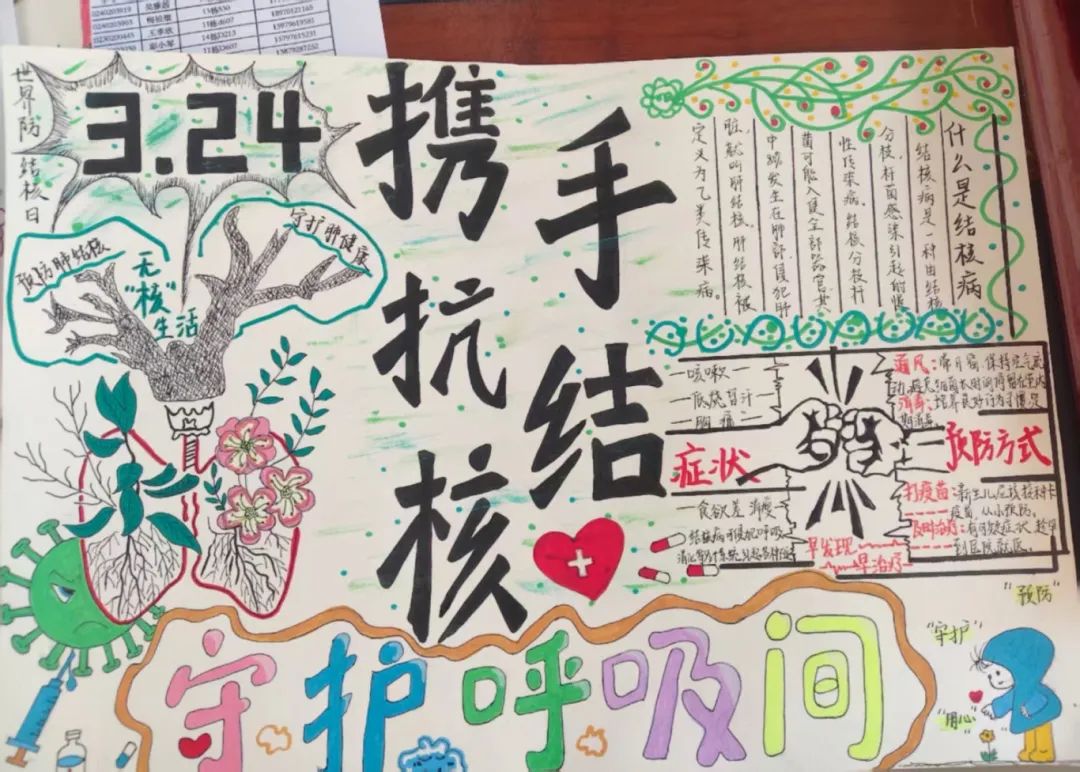 世界防结核日
3.24
预防肺结核
无
"核"
生活
守护肺健康
携手
抗结核
什么是结核病
结核病是一种由结核
分枝杆菌感染引起的慢
性传染病。结核分枝杆
菌可能入侵全身器官,其
中球发生在肺部侵犯肺
脏,就叫肺结核。肺结核被
定义为乙类传染病。
咳嗽
低烧 盗汗
胸痛
症状
食欲差
结核病可侵犯呼吸
通风:常开窗,保持空气流
消毒:培养良好
预防方式
打疫苗:新生儿应接种卡
疫苗,从小预防。
及时治疗:有可疑症状,趁早
到医院就医。
早发现
早治疗
"预防"
"守护"
"用心"
守护呼吸间